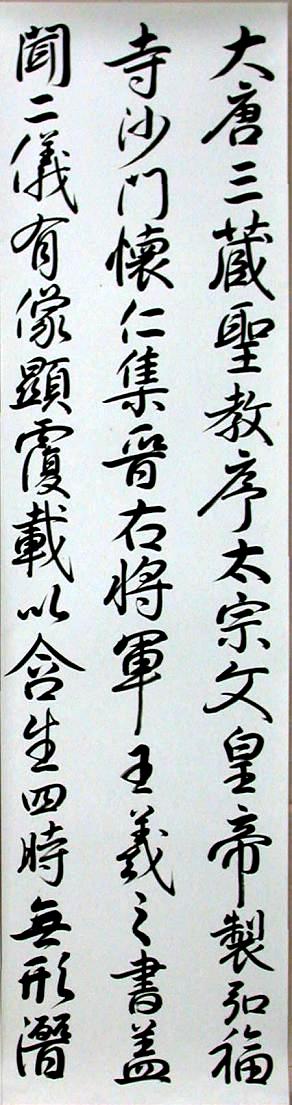 大唐三藏聖教序太宗文皇帝製弘福
寺沙門懷仁集晉右將軍王羲之書盖
聞二儀有像顯覆載以含生四時無形潛